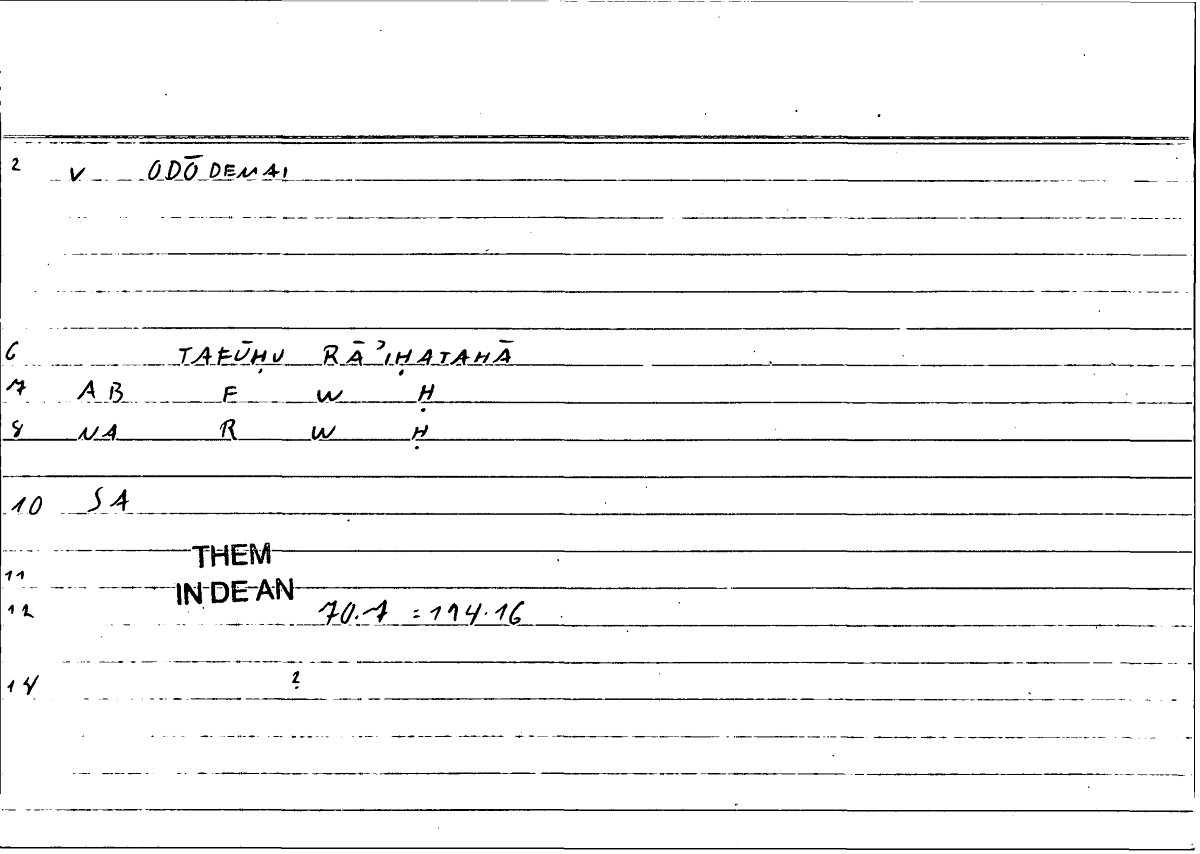 2 V ODŌDEMAI
6 TAFŪḤU RĀʾIḤATAHĀ
7 AB F W Ḥ
8 NA R W Ḥ
10 SA
THEM
11
IN DE AN
12 70.7 = 194.16
14 ?